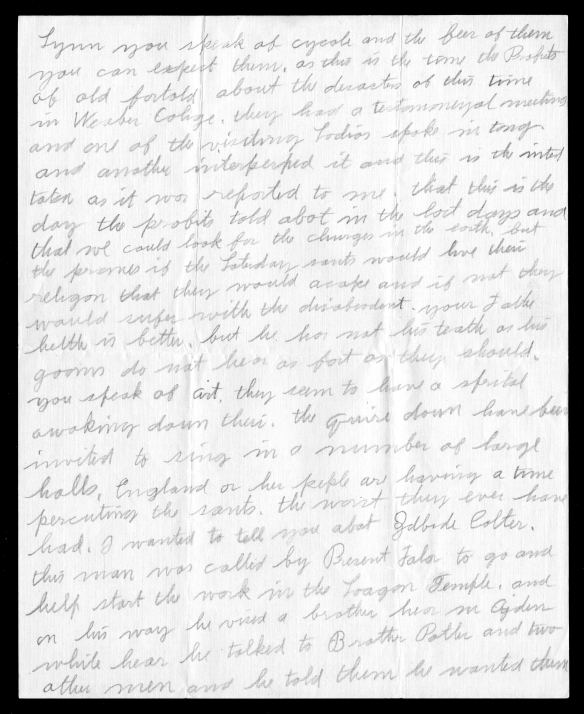 Lynn you speak of cycole and the feer of them
you can expect them, as this is the time the Profits
of old fortold about the desastes of this time
in Weaber Colige. they had a testomonyal meeting
and one of the visiting Ladies spoke in tong.
and another interperped it and this is the inter
taton as it was reported to me. that this is the
day the profits told abot in the last days and
that we could look for the changes in the earth, but
the promes if the Laterday sants would live their
religon that they would ascape and if not they
would sufer with the disobedent. your Fathe
helth is better. but he has not his teath as his
gooms do not heal as fast as they should.
you speak of art. they seem to have a spirtal
awoking down their. the Quire down have been
invited to sing in a number of large
halls, England or her peple are having a time
percuting the sants. the worst they ever have
had. I wanted to tell you abot Colter.
this man was called by Present Talor to go and
help start the work in the Loagon Temple. and
on his way he vised a brother hear in Ogden
while hear he talked to Brother Potter and two
other men and he told them he wanted them